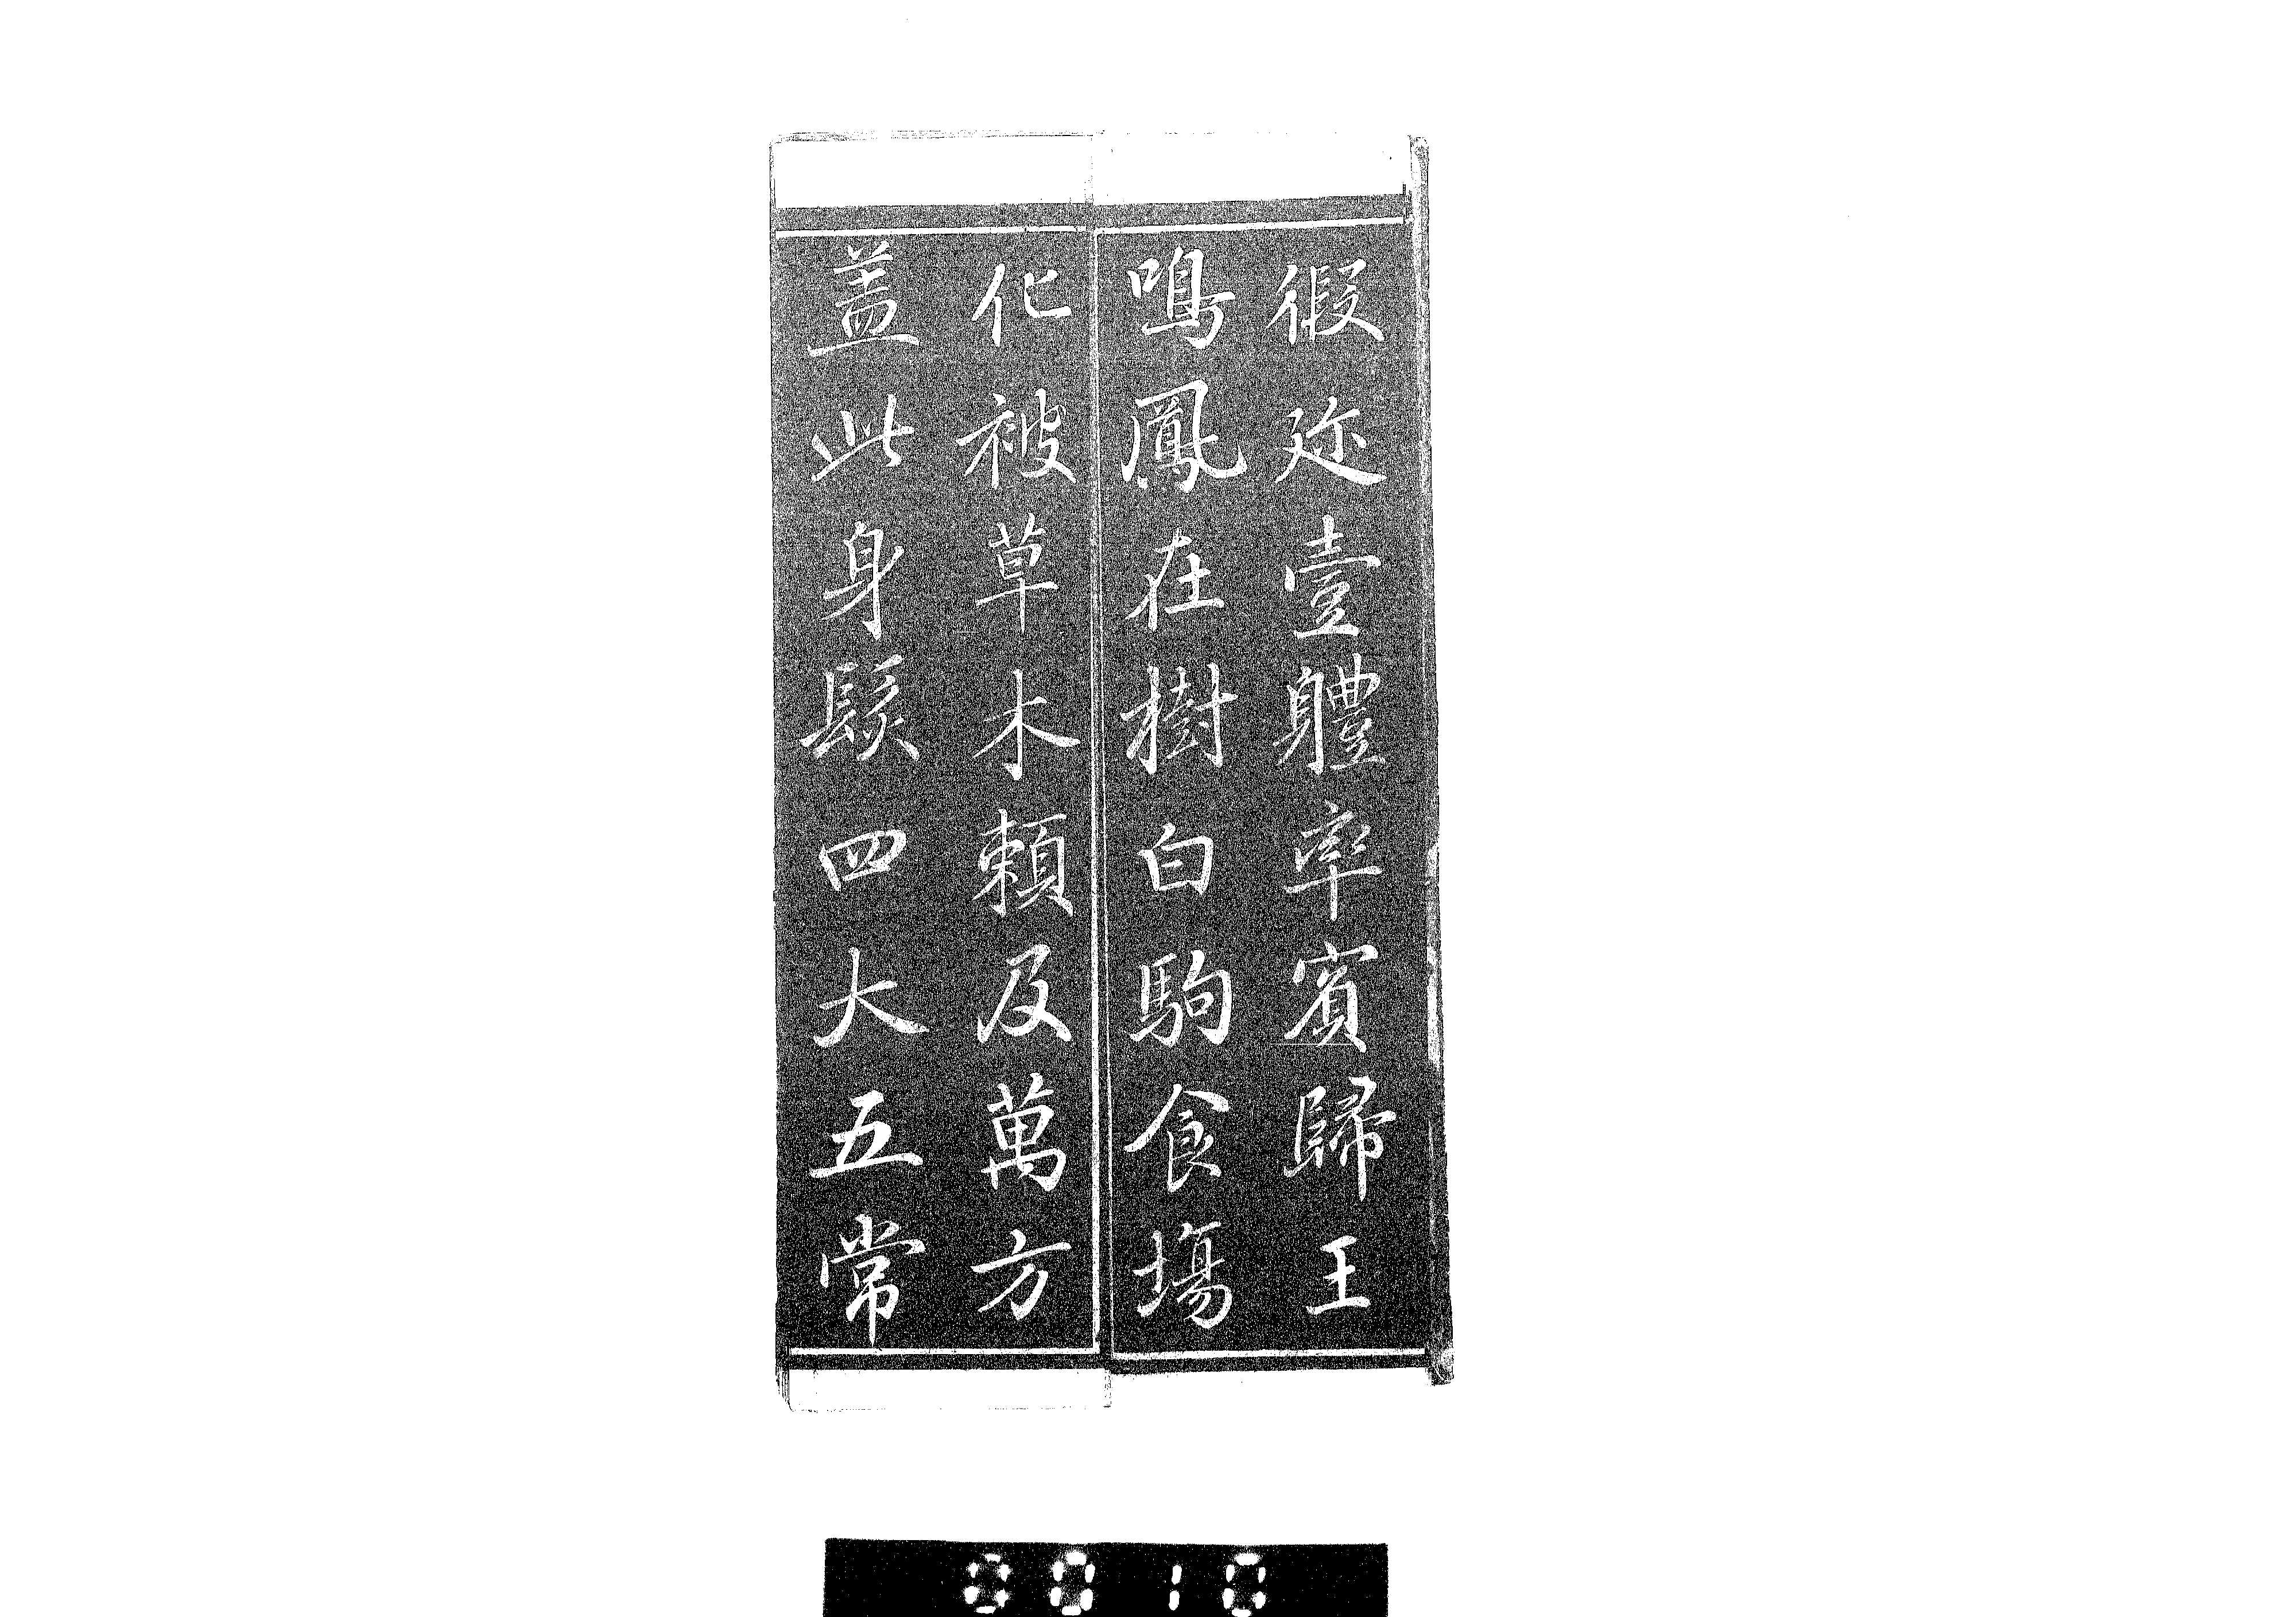 徦迩壹軆率賓歸王
鳴鳳在樹白駒食塲
化被草木頼及萬方
盖此身髮四大五常
0010